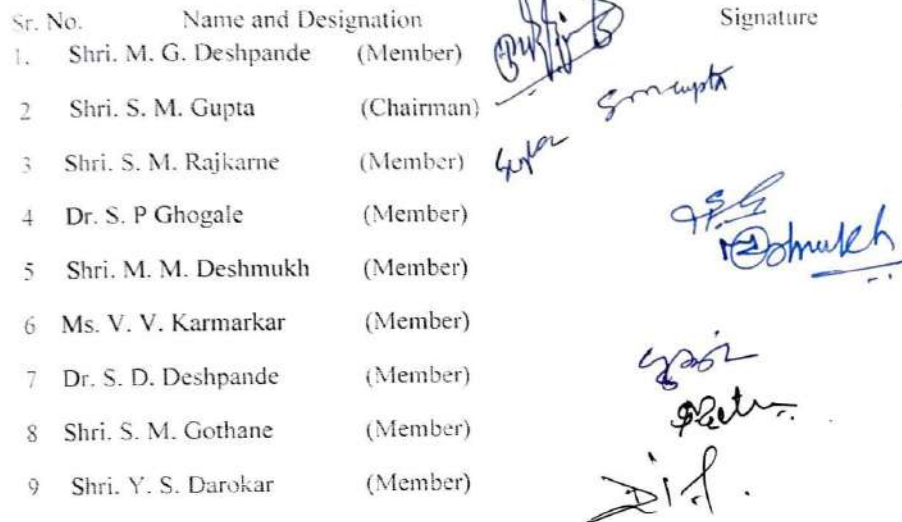 Sr. No. Name and Designation Signature
1. Shri. M. G. Deshpande (Member)
2 Shri. S. M. Gupta (Chairman) Smgupta
3 Shri. S. M. Rajkarne (Member)
4 Dr. S. P Ghogale (Member)
5 Shri. M. M. Deshmukh (Member)
6 Ms. V. V. Karmarkar (Member)
7 Dr. S. D. Deshpande (Member)
8 Shri. S. M. Gothane (Member)
9 Shri. Y. S. Darokar (Member)